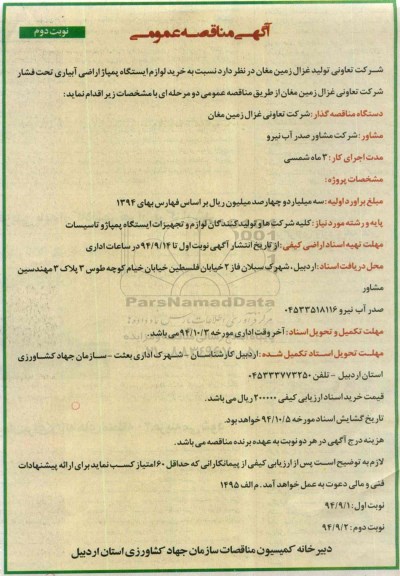 نوبت دوم
آگهی مناقصه عمومی
شرکت تعاونی تولید غزال زمین مغان در نظر دارد نسبت به خرید لوازم ایستگاه پمپاژ اراضی آبیاری تحت فشار
شرکت تعاونی غزال زمین مغان از طریق مناقصه عمومی دو مرحله ای با مشخصات زیر اقدام نماید:
دستگاه مناقصه گذار: شرکت تعاونی غزال زمین مغان
مشاور: شرکت مشاور صدر آب نیرو
مدت اجرای کار: ۳ ماه شمسی
مشخصات پروژه:
مبلغ برآورد اولیه: سه میلیارد و چهارصد میلیون ریال بر اساس فهارس بهای ۱۳۹۴
پایه و رشته مورد نیاز: کلیه شرکت ها و تولیدکنندگان لوازم و تجهیزات ایستگاه پمپاژ و تاسیسات
مهلت تهیه اسناد اراضی کیفی: از تاریخ انتشار آگهی نوبت اول تا ۹۴/۹/۱۴ در ساعات اداری
محل دریافت اسناد: اردبیل، شهرک سبلان فاز ۲ خیابان فلسطین خیابان خیام کوچه طوس ۳ پلاک ۳ مهندسین
مشاور
صدر آب نیرو ۰۴۵۳۳۵۱۸۱۱۶
مهلت تکمیل و تحویل اسناد: آخر وقت اداری مورخه ۹۴/۱۰/۳ می باشد.
مهلت تحویل اسناد تکمیل شده: اردبیل کارشناسان - شهرک اداری بعثت - سازمان جهاد کشاورزی
استان اردبیل - تلفن ۰۴۵۳۳۷۷۳۲۵۰
قیمت خرید اسناد ارزیابی کیفی ۲۰۰۰۰۰ ریال می باشد.
تاریخ گشایش اسناد مورخه ۹۴/۱۰/۵ خواهد بود.
هزینه درج آگهی در هر دو نوبت به عهده برنده مناقصه می باشد.
لازم به توضیح است پس از ارزیابی کیفی از پیمانکارانی که حداقل ۶۰ امتیاز کسب نماید برای ارائه پیشنهادات
فنی و مالی دعوت به عمل خواهد آمد. م الف ۱۴۹۵
نوبت اول: ۹۴/۹/۱
نوبت دوم: ۹۴/۹/۲
دبیرخانه کمیسیون مناقصات سازمان جهاد کشاورزی استان اردبیل
ParsNamadData